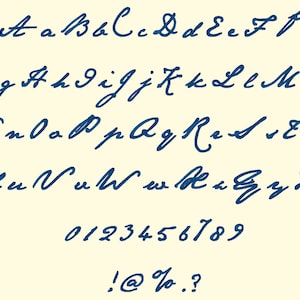 A a B b C c D d E e F f
g H h I i J j K k L l M
n O o P p Q q R r S s t
u U v W w X x y
0 1 2 3 4 5 6 7 8 9
! @ % . ?